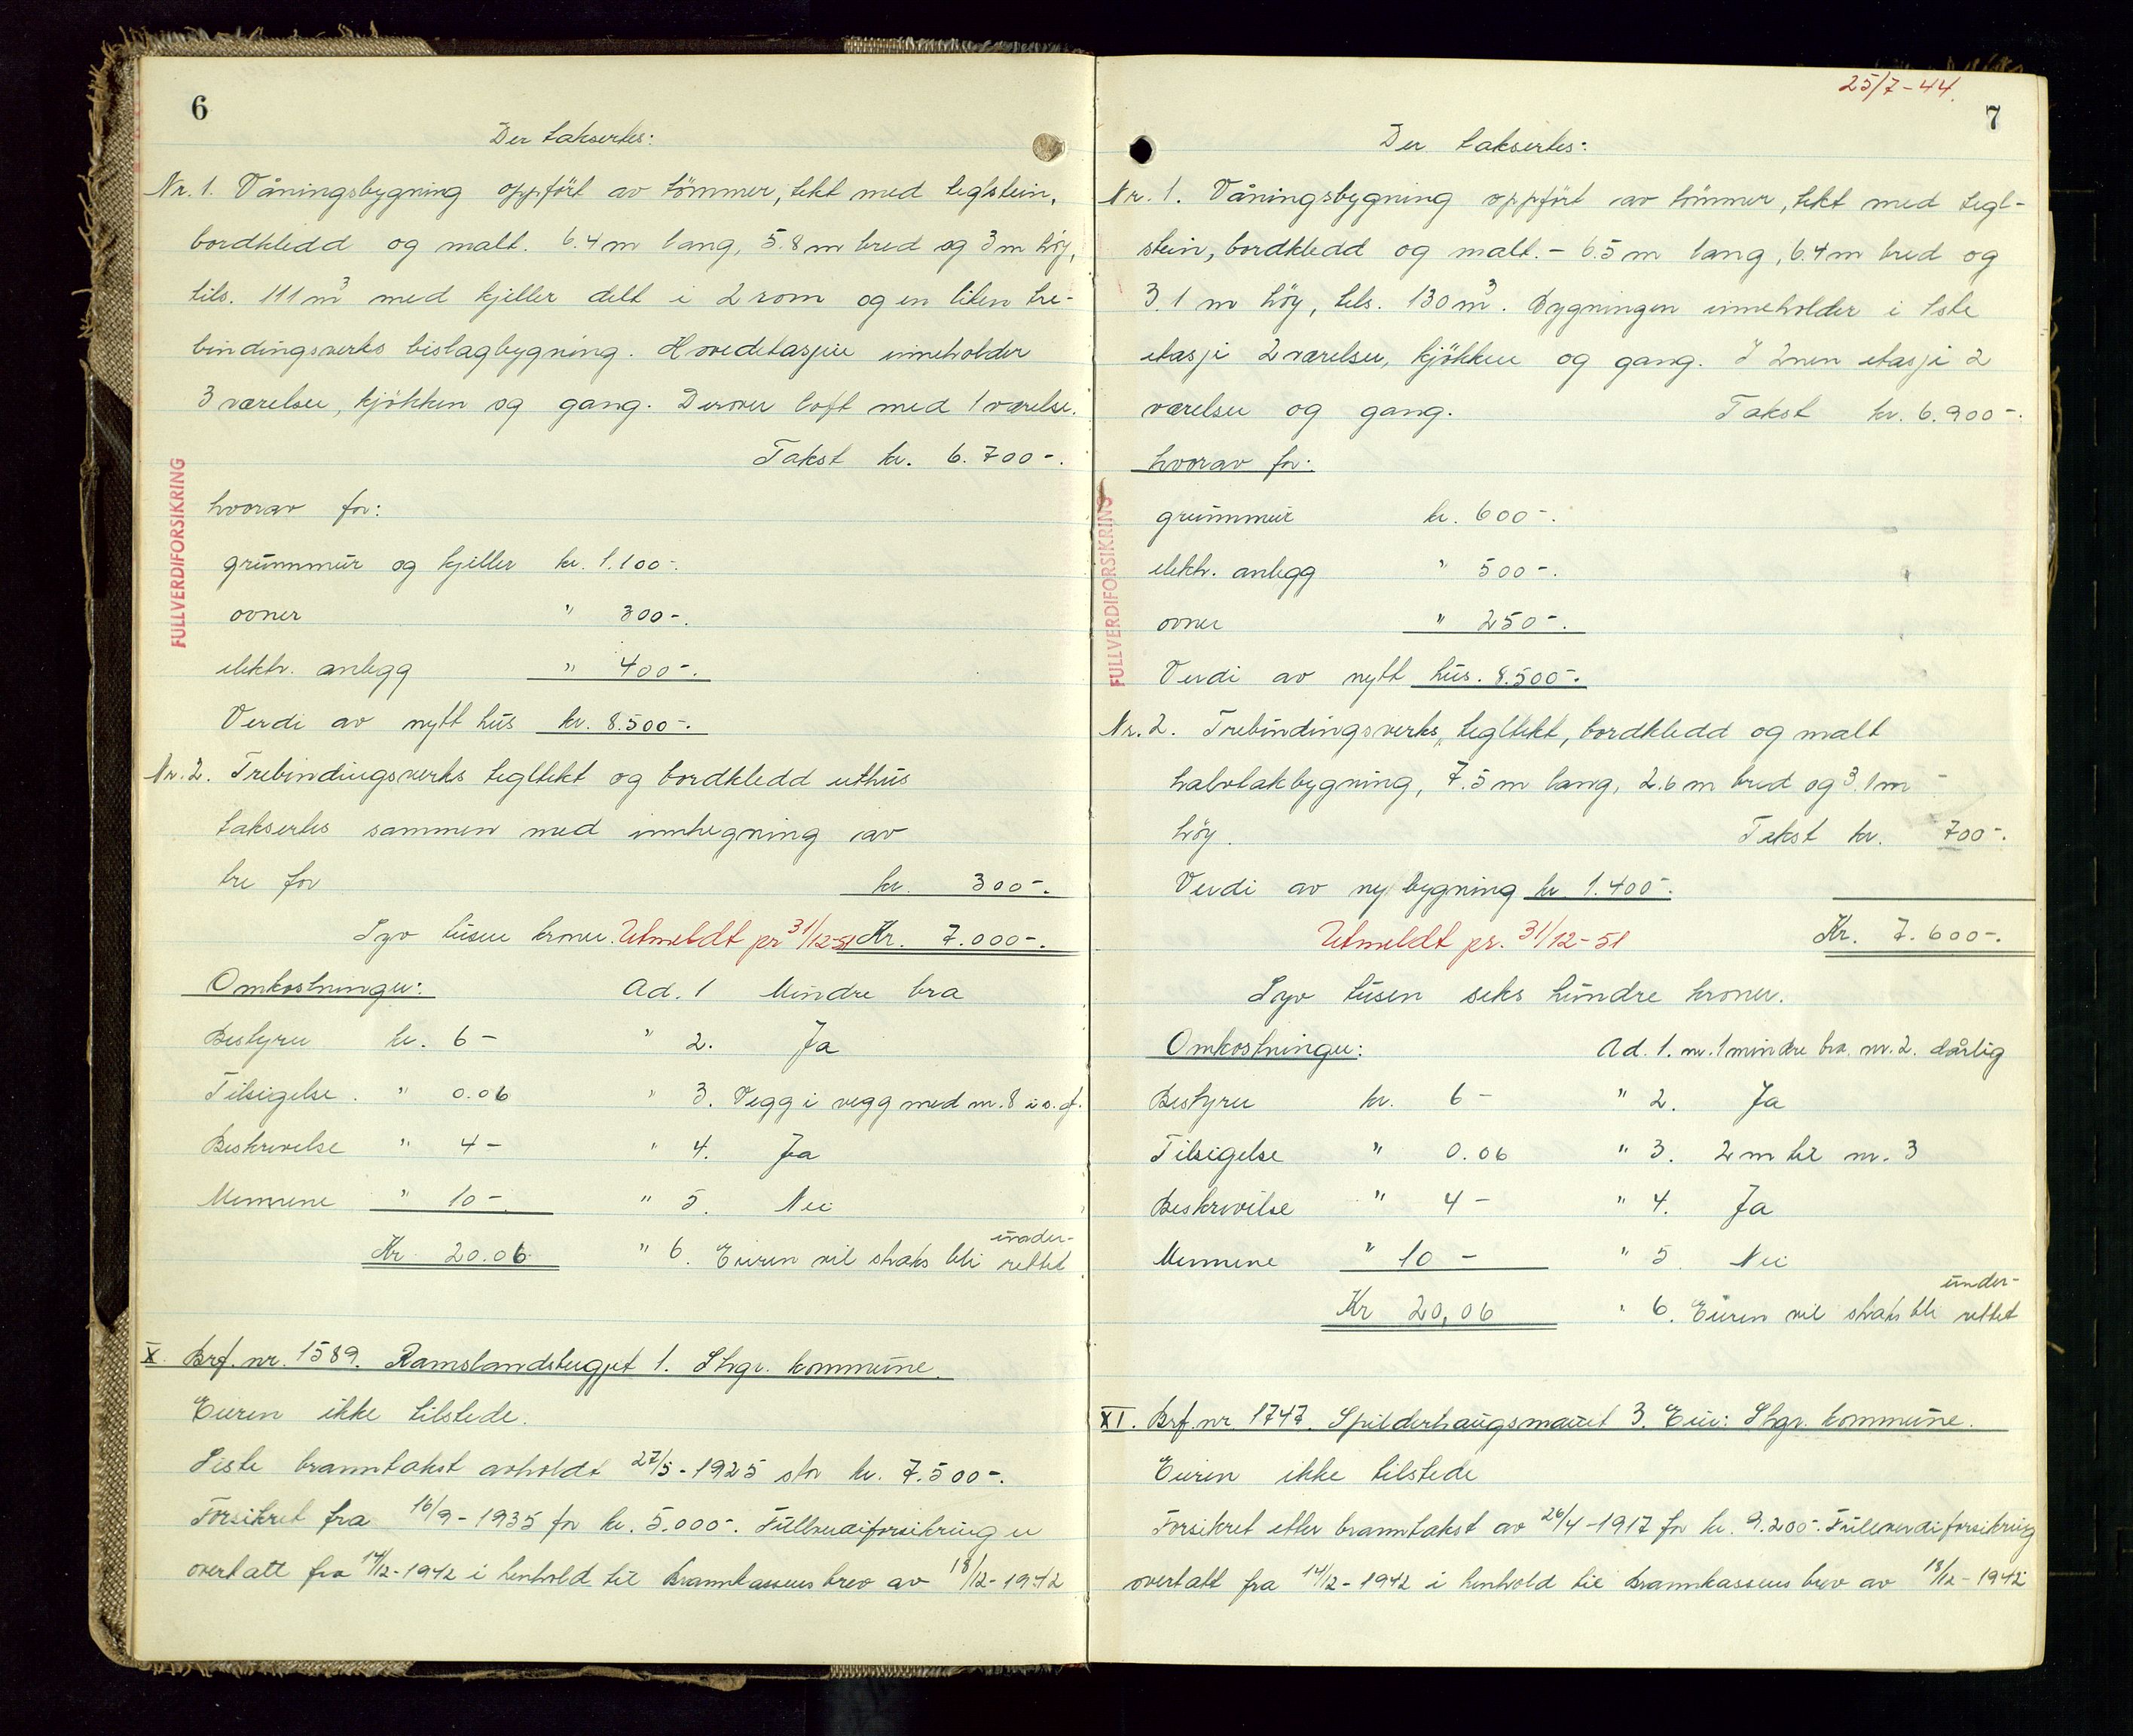 6
Der taksertes:
Nr. 1. Våningsbygning oppført av tömmer, tekt med teglstein,
bordkledd og malt. 6.4 m lang, 5.8 m bred og 3 m höy,
tils. 111 m³ med kjeller delt i 2 rom og en liten tre-
bindingsverks bislagbygning. Hovedetasjen inneholder
3 værelser, kjökken og gang. Derover loft med 1 værelse.
Takst kr. 6.700-.
hvorav for:
grunnmur og kjeller kr. 1.100-.
ovner " 300-.
elektr. anlegg " 400-.
Verdi av nytt hus kr. 8.500-.
Nr. 2. Trebindingsverks tegltekt og bordkledd uthus
taksertes sammen med innhegning av
tre for kr. 300-.
Syv tusen kroner. Utmeldt pr 31/12-51 Kr. 7.000-.
Omkostninger: Ad. 1 Mindre bra
Bestyrer kr. 6- " 2. Ja
Tilsigelse. " 0.06 " 3. Vegg i vegg med nr. 8 i s. g.
Beskrivelse " 4- " 4. Ja
Mennene " 10-. " 5. Nei
Kr 20.06 " 6. Eieren vil straks bli under-
rettet
X. Brf. nr. 1589. Ramslandsbugjet 1. Shgr. kommune.
Eieren ikke tilstede.
Siste branntakst avholdt 27/5-1925 stor kr. 7.500-.
Forsikret fra 16/9-1935 for kr. 5.000-. Fullverdiforsikring er
overtatt fra 14/12-1942 i henhold til Brannkassens brev av 18/12-1942
FULLVERDIFORSIKRING
25/7-44.
7
Der taksertes:
Nr. 1. Våningsbygning oppfört av tömmer, tekt med tegl-
stein, bordkledd og malt. - 6.5 m lang, 6.4 m bred og
3.1 m höy, tils. 130 m³. Bygningen inneholder i 1ste
etasje 2 værelser, kjökken og gang. I 2nen etasje 2
værelser og gang. Takst kr. 6.900-.
hvorav for:
grunnmur kr. 600-.
elektr. anlegg " 500-.
ovner " 250-.
Verdi av nytt hus. 8.500-.
Nr. 2. Trebindingsverks, tegltekt, bordkledd og malt
halvtakbygning, 7.5 m lang, 2.6 m bred og 3.1 m
höy. Takst kr. 700-.
Verdi av ny bygning kr 1.400-.
Utmeldt pr. 31/12-51 Kr. 7.600-.
Syv tusen seks hundre kroner.
Omkostninger: Ad. 1. nr. 1 mindre bra. nr. 2. dårlig
Bestyrer kr. 6- " 2. Ja
Tilsigelse " 0.06 " 3. 2 m til nr. 3
Beskrivelse " 4- " 4. Ja
Mennene " 10- " 5 Nei
Kr 20,06 " 6. Eieren vil straks bli under-
rettet
XI. Brf. nr. 1747. Spilderhaugsmauet 3. Eier: Shgr. kommune.
Eieren ikke tilstede
Forsikret etter branntakst av 26/4-1917 for kr. 9.200-. Fullverdiforsikring
overtatt fra 14/12-1942 i henhold til Brannkassens brev av 18/12-1942
FULLVERDIFORSIKRING